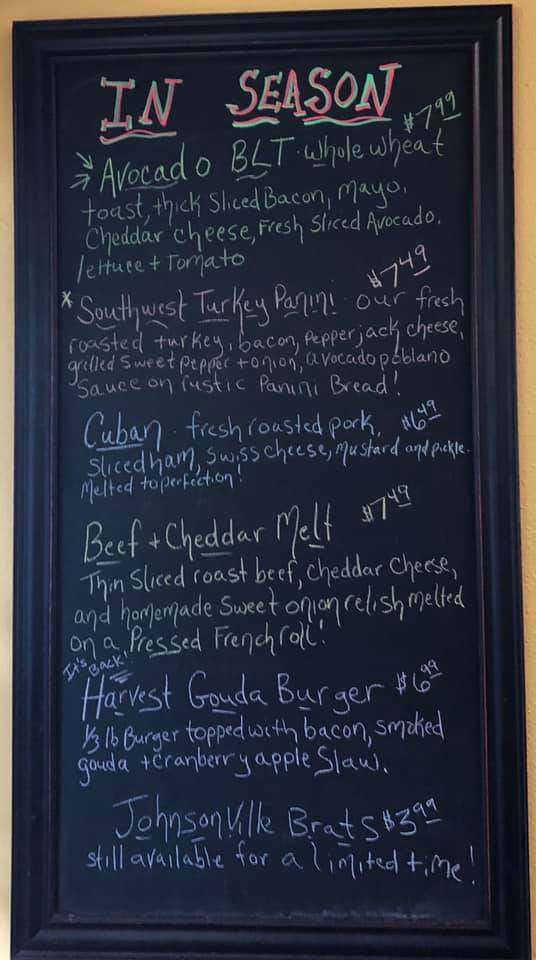 IN SEASON
$7.99
Avocado BLT · whole wheat
toast, thick Sliced Bacon, Mayo,
Cheddar cheese, Fresh Sliced Avocado,
lettuce + Tomato
$7.49
* Southwest Turkey Panini · our fresh
roasted turkey, bacon, pepperjack cheese,
grilled sweet pepper + onion, avocado poblano
Sauce on rustic Panini Bread!
Cuban · fresh roasted pork, $6.49
Sliced ham, Swiss cheese, Mustard and pickle.
Melted to perfection!
Beef + Cheddar Melt $7.49
Thin Sliced roast beef, Cheddar Cheese,
and homemade Sweet onion relish melted
on a Pressed French roll!
It's Back!
Harvest Gouda Burger $6.99
1/3 lb Burger topped with bacon, smoked
gouda + cranberry apple Slaw.
Johnsonville Brats $3.99
still available for a limited time!